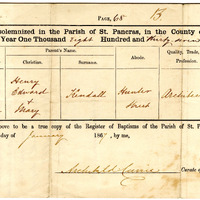 PAGE, 68
olemnized in the Parish of St. Pancras, in the County o
Year One Thousand Eight Hundred and Thirty
Parent's Name.
Abode.
Quality, Trade,
Profession.
Christian.
Surname.
Henry
Edward
&
Mary
Kendall
Hunter
Street
Architec
bove to be a true copy of the Register of Baptisms of the Parish of St. P
day of January 186 , by me,
Curate o